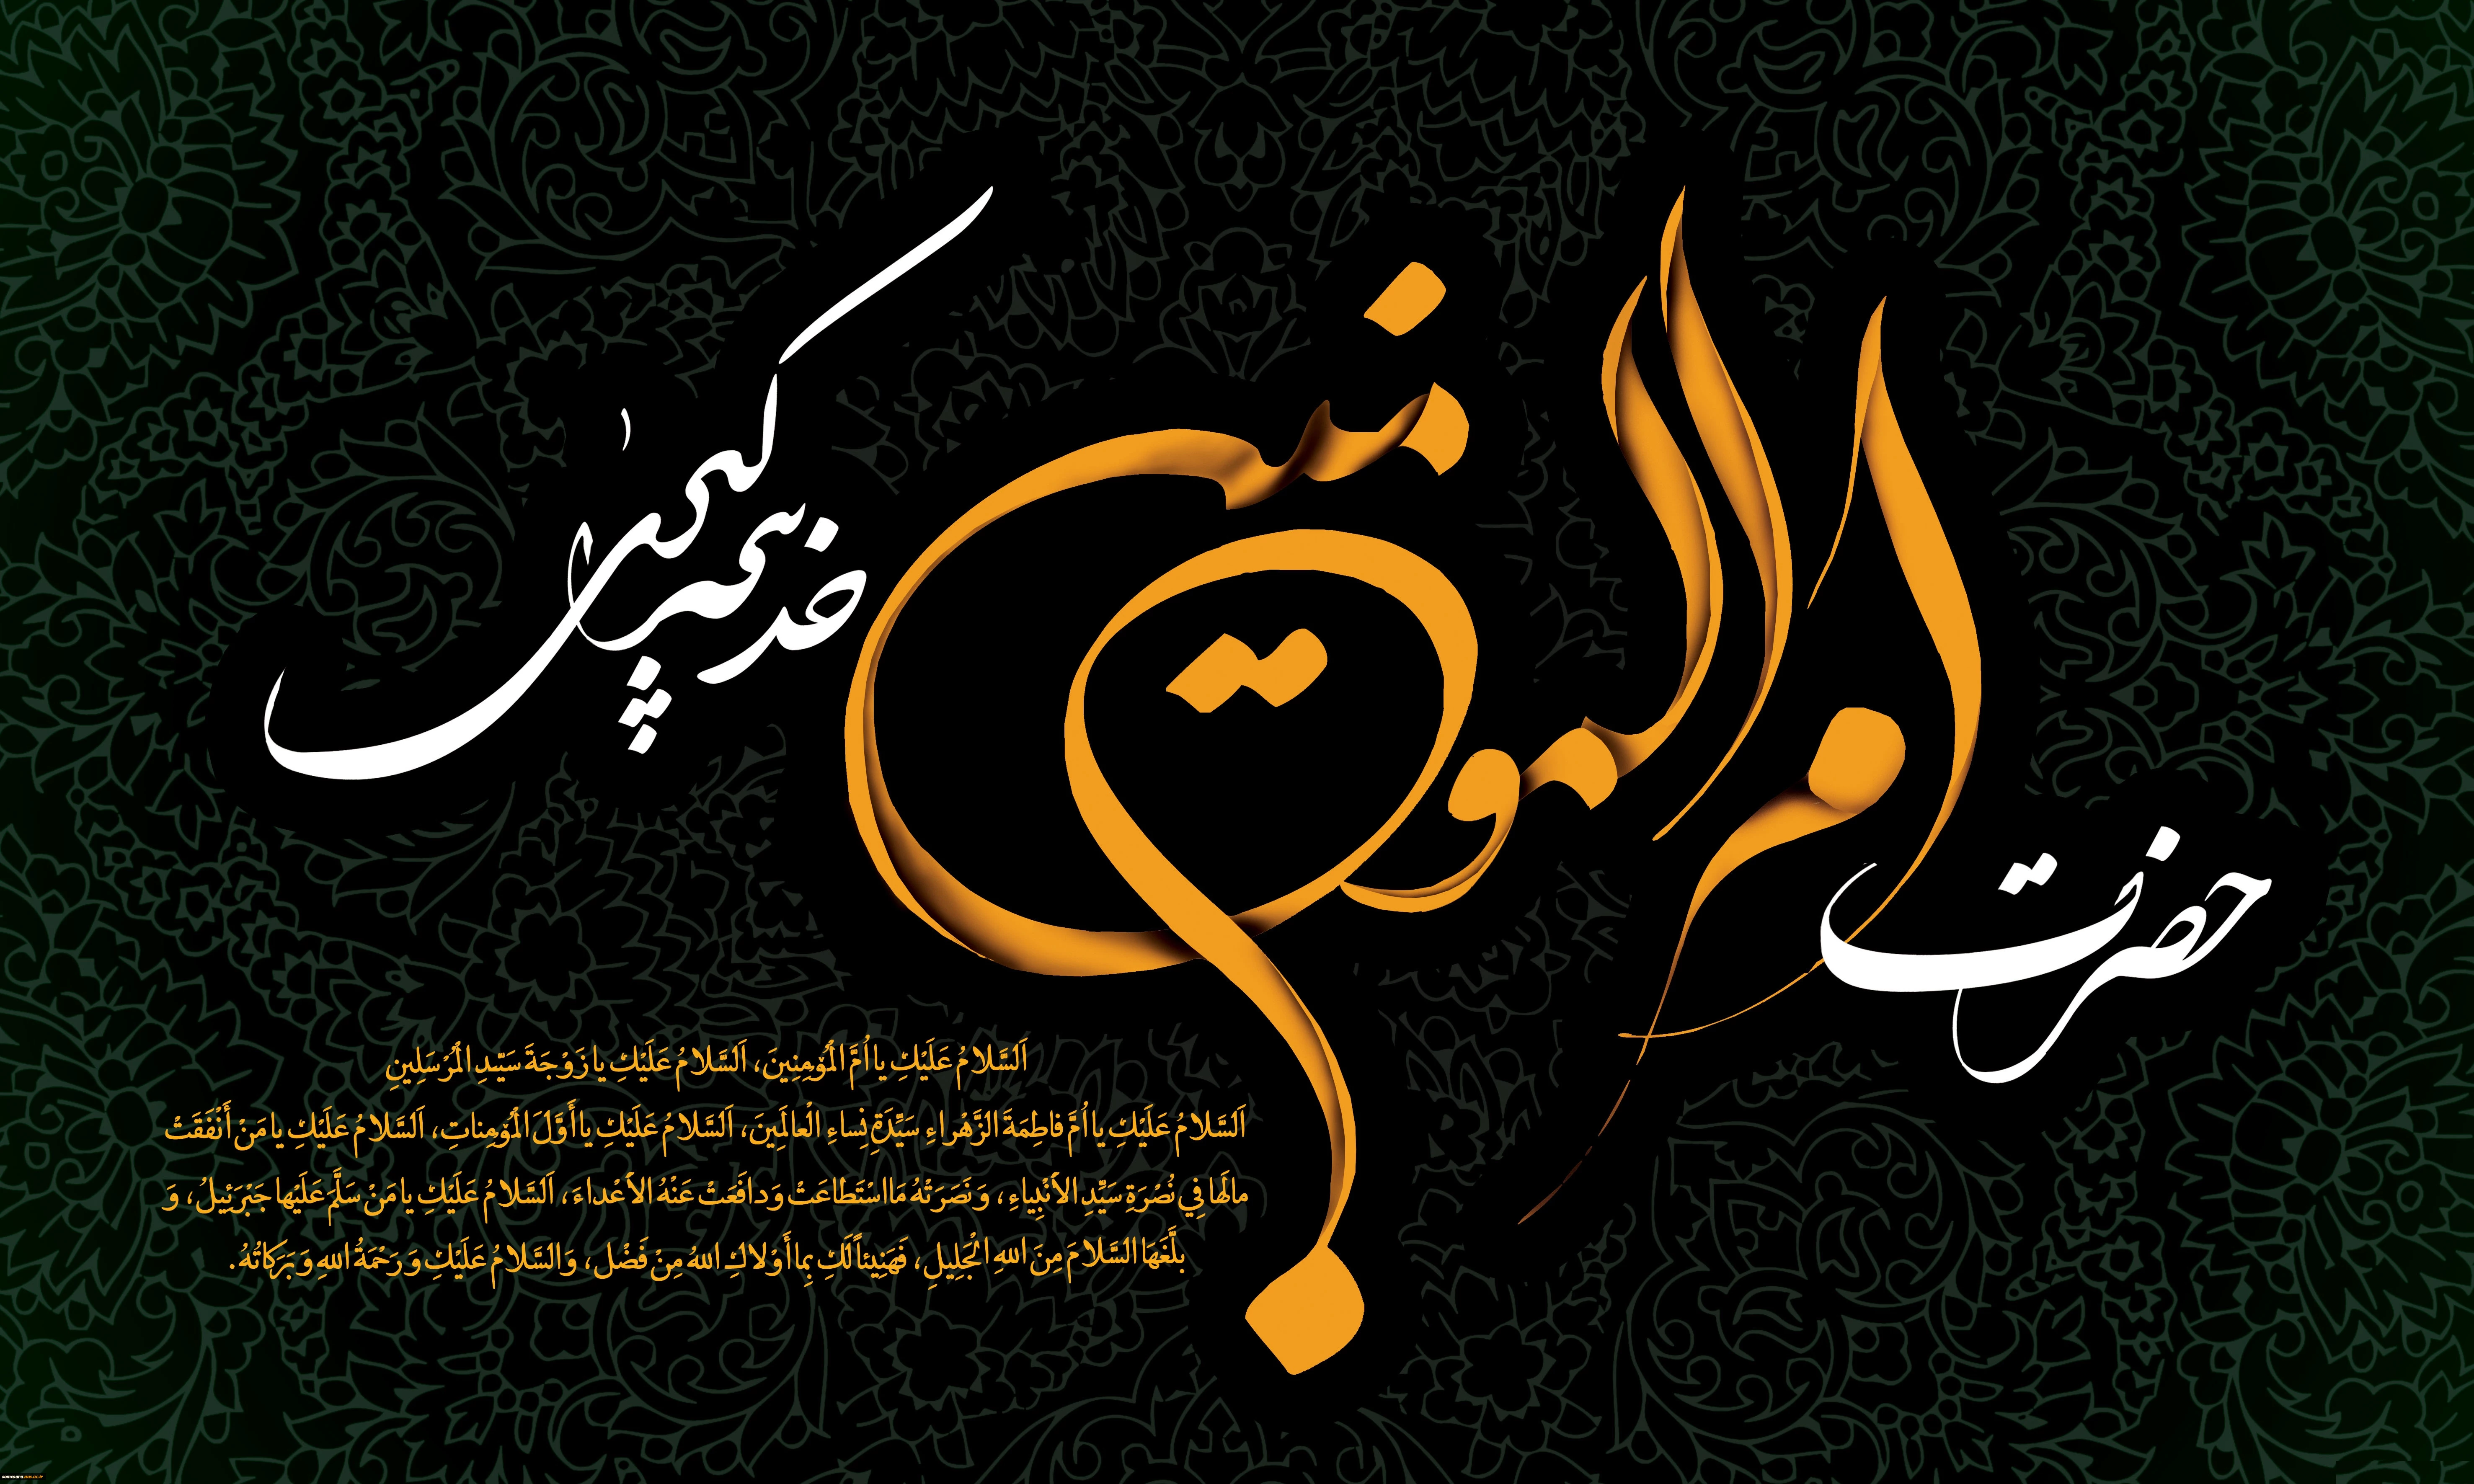 حضرت
ام المؤمنین
خدیجه کبری
اَلسَّلامُ عَلَيْكِ يا اُمَّ الْمُؤمِنِينَ، اَلسَّلامُ عَلَيْكِ يا زَوْجَةَ سَيِّدِ الْمُرْسَلِينِ
اَلسَّلامُ عَلَيْكِ يا اُمَّ فاطِمَةَ الزَّهْراءِ سَيِّدَةِ نِساءِ الْعالَمِينَ، اَلسَّلامُ عَلَيْكِ يا أَوَّلَ الْمُؤمِناتِ، اَلسَّلامُ عَلَيْكِ يا مَنْ أَنْفَقَتْ
مالَها فِي نُصْرَةِ سَيِّدِ الأَنْبِياءِ، وَ نَصَرَتْهُ مَا اسْتَطاعَتْ وَ دافَعَتْ عَنْهُ الأَعْداءَ، اَلسَّلامُ عَلَيْكِ يا مَنْ سَلَّمَ عَلَيْها جَبْرَئِيلُ، وَ
بلَّغَهَا السَّلامَ مِنَ اللهِ الْجَلِيلِ، فَهَنِيئاً لَكِ بِما أَوْلاكِ اللهُ مِنْ فَضْل، وَالسَّلامُ عَلَيْكِ وَ رَحْمَةُ اللهِ وَ بَرَكاتُهُ.